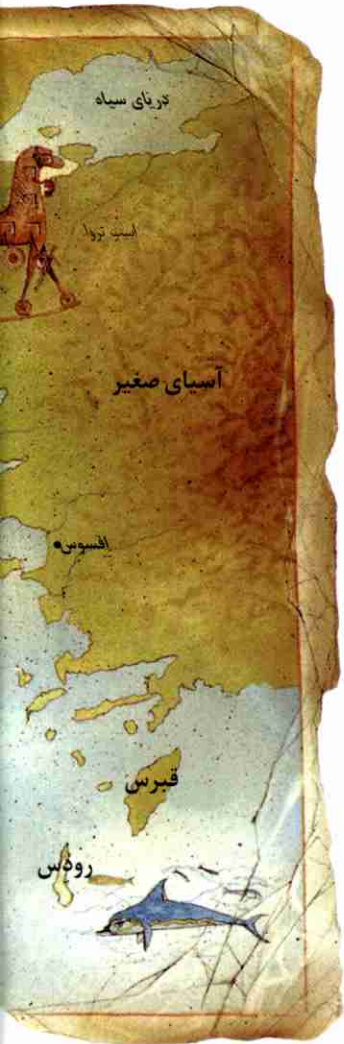 دریای سیاه
اسب تروا
آسیای صغیر
افسوس
قبرس
رودس